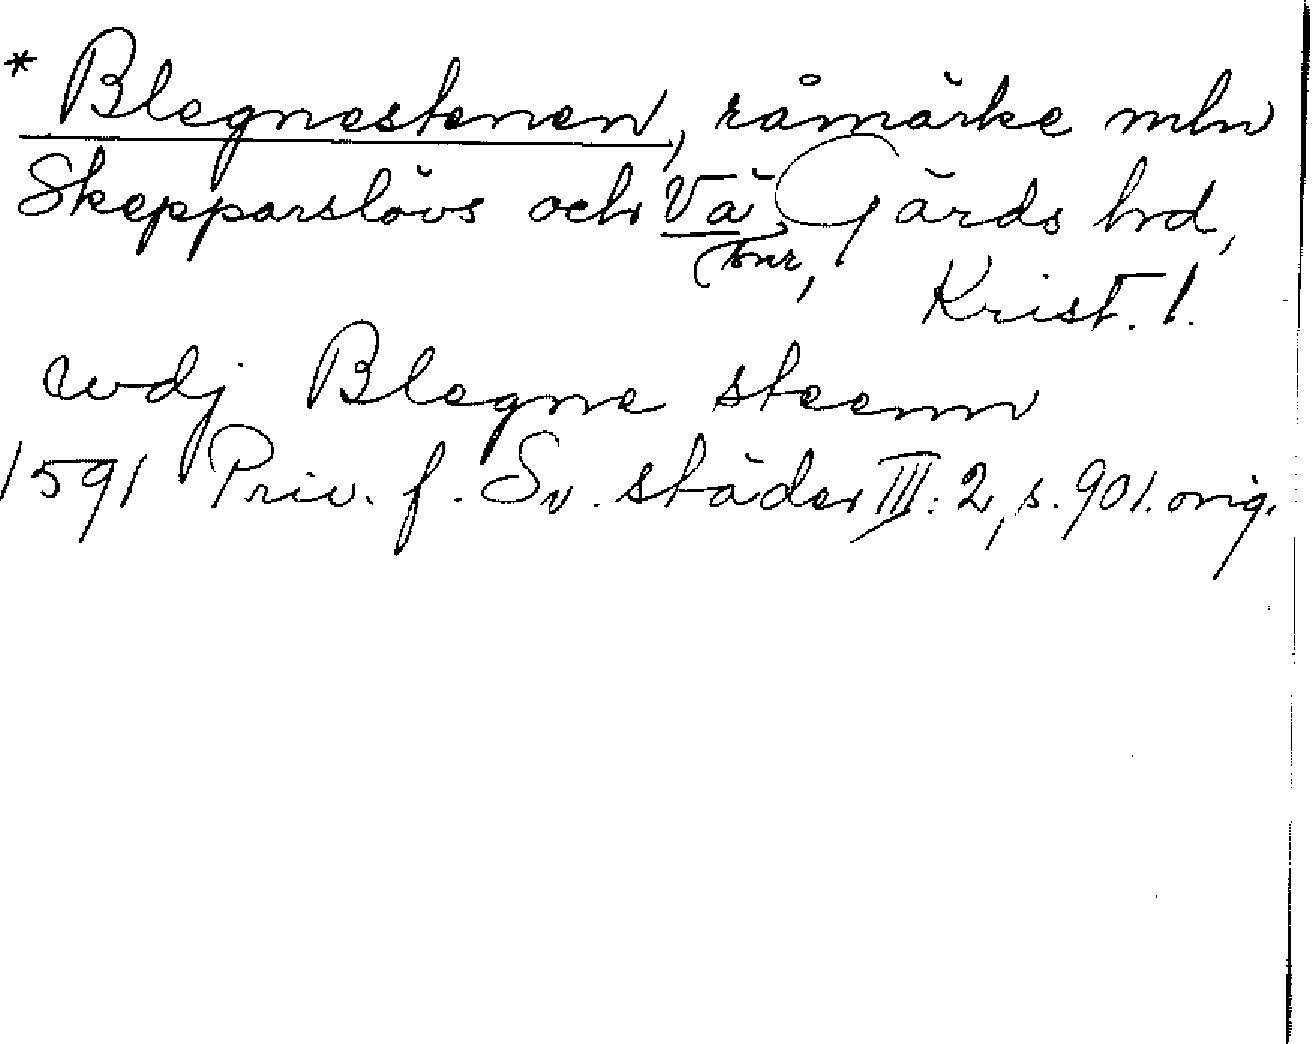 * Blegnestenen, råmärke mln
Skepparslövs och Vä Gärds hd,
snr, Krist. l.
wdj Blegne steenn
1591 Priv. f. Sv. städer III: 2, s. 901. orig.